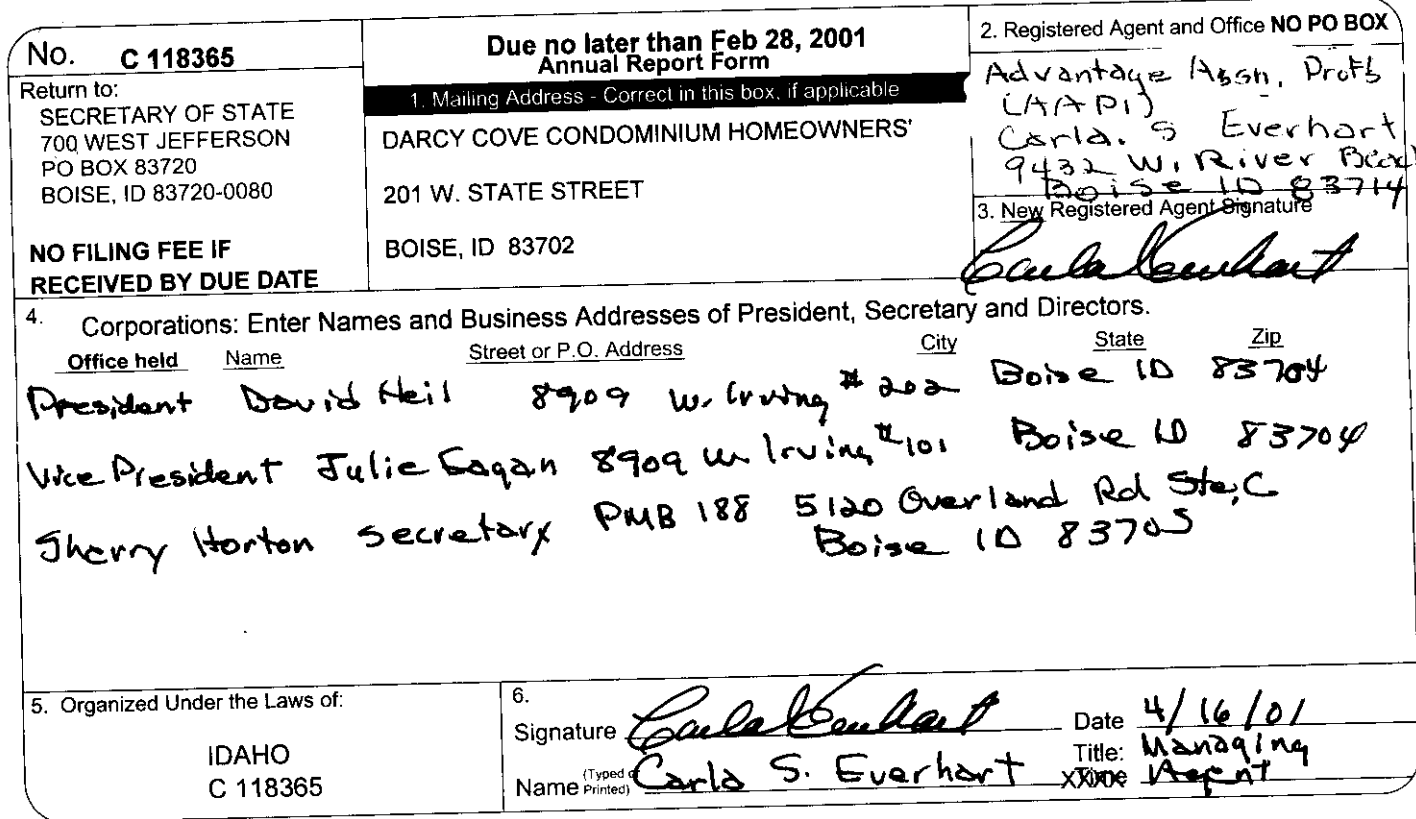 No. C 118365
Return to:
SECRETARY OF STATE
700 WEST JEFFERSON
PO BOX 83720
BOISE, ID 83720-0080
NO FILING FEE IF
RECEIVED BY DUE DATE
Due no later than Feb 28, 2001
Annual Report Form
1. Mailing Address - Correct in this box, if applicable
DARCY COVE CONDOMINIUM HOMEOWNERS'
201 W. STATE STREET
BOISE, ID 83702
2. Registered Agent and Office NO PO BOX
Advantage Assn. Profs
(AAPI)
Carla. S Everhart
9432 W. River
Boise ID 83714
3. New Registered Agent Signature
Carla Everhart
4. Corporations: Enter Names and Business Addresses of President, Secretary and Directors.
Office held Name Street or P.O. Address City State Zip
President David Heil 8909 W. Irving # 202 Boise ID 83704
Vice President Julie Eagan 8909 W Irving #101 Boise ID 83704
Sherry Horton Secretary PMB 188 5120 Overland Rd Ste, C
Boise ID 83705
5. Organized Under the Laws of:
IDAHO
C 118365
6.
Signature Carla Everhart Date 4/16/01
Name (Typed or Printed) Carla S. Everhart Title: Managing
Agent